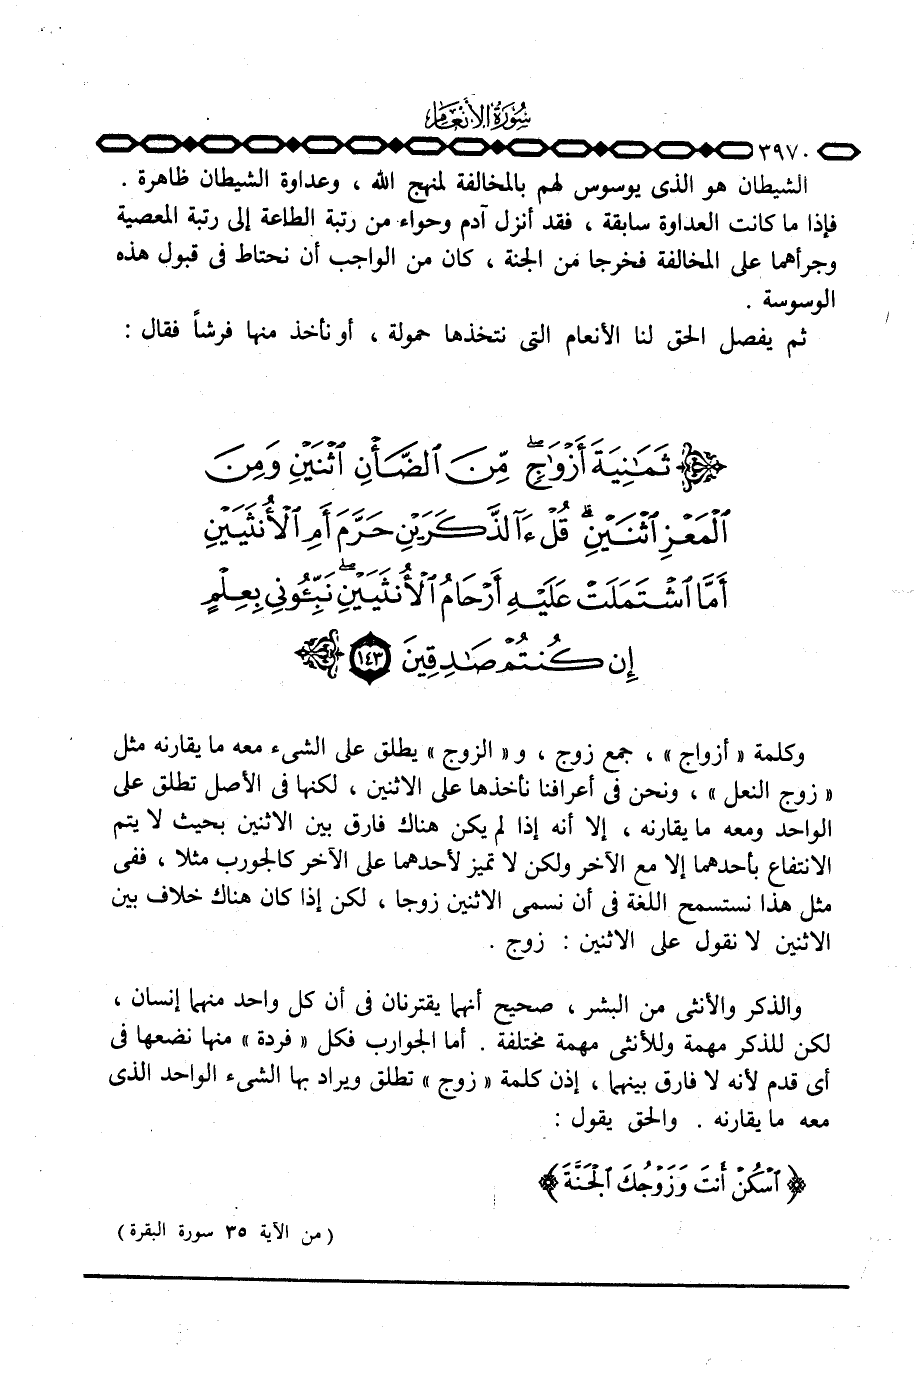 سُورَةُ الأَنْعَامِ
٣٩٧٠
الشيطان هو الذى يوسوس لهم بالمخالفة لمنهج الله ، وعداوة الشيطان ظاهرة .
فإذا ما كانت العداوة سابقة ، فقد أنزل آدم وحواء من رتبة الطاعة إلى رتبة المعصية
وجرأهما على المخالفة فخرجا من الجنة ، كان من الواجب أن نحتاط فى قبول هذه
الوسوسة .
ثم يفصل الحق لنا الأنعام التى نتخذها حمولة ، أو نأخذ منها فرشاً فقال :
ثَمَٰنِيَةَ أَزْوَٰجٍۖ مِّنَ ٱلضَّأْنِ ٱثْنَيْنِ وَمِنَ
ٱلْمَعْزِ ٱثْنَيْنِۗ قُلْ ءَآلذَّكَرَيْنِ حَرَّمَ أَمِ ٱلْأُنثَيَيْنِ
أَمَّا ٱشْتَمَلَتْ عَلَيْهِ أَرْحَامُ ٱلْأُنثَيَيْنِۖ نَبِّـُٔونِى بِعِلْمٍ
إِن كُنتُمْ صَٰدِقِينَ ١٤٣
وكلمة « أزواج » ، جمع زوج ، و« الزوج » يطلق على الشىء معه ما يقارنه مثل
« زوج النعل » ، ونحن فى أعرافنا نأخذها على الاثنين ، لكنها فى الأصل تطلق على
الواحد ومعه ما يقارنه ، إلا أنه إذا لم يكن هناك فارق بين الاثنين بحيث لا يتم
الانتفاع بأحدهما إلا مع الآخر ولكن لا تميز لأحدهما على الآخر كالجورب مثلا ، ففى
مثل هذا نستسمح اللغة فى أن نسمى الاثنين زوجا ، لكن إذا كان هناك خلاف بين
الاثنين لا نقول على الاثنين : زوج .
والذكر والأنثى من البشر ، صحيح أنهما يقترنان فى أن كل واحد منهما إنسان ،
لكن للذكر مهمة وللأنثى مهمة مختلفة . أما الجوارب فكل « فردة » منها نضعها فى
أى قدم لأنه لا فارق بينهما ، إذن كلمة « زوج » تطلق ويراد بها الشىء الواحد الذى
معه ما يقارنه . والحق يقول :
﴿ ٱسْكُنْ أَنتَ وَزَوْجُكَ ٱلْجَنَّةَ ﴾
( من الآية ٣٥ سورة البقرة )